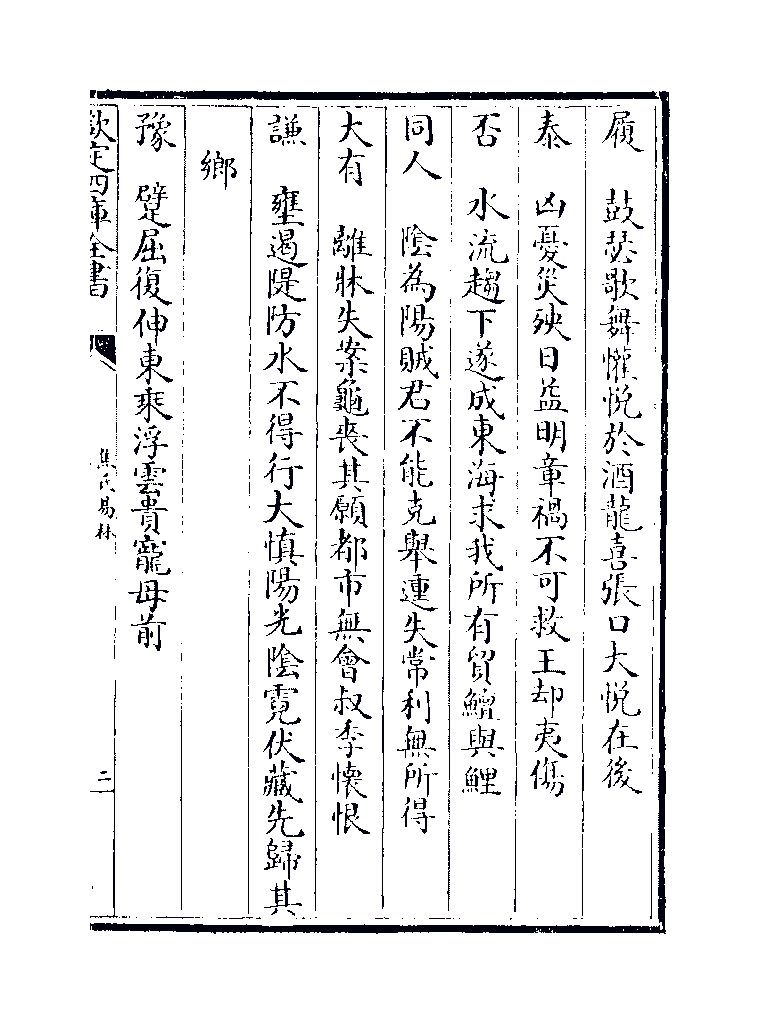 履　鼓瑟歌舞懽悅於酒龍喜張口大悅在後
泰　凶憂災殃日益明章禍不可救王却夷傷
否　水流趨下遂成東海求我所有買鱣與鯉
同人　陰為陽賊君不能克舉連失常利無所得
大有　離牀失案龜喪其願都市無會叔季懷恨
謙　壅遏隄防水不得行大慎陽光陰霓伏藏先歸其
鄉
豫　躄屈復伸東乘浮雲貴寵母前
欽定四庫全書
焦氏易林
二